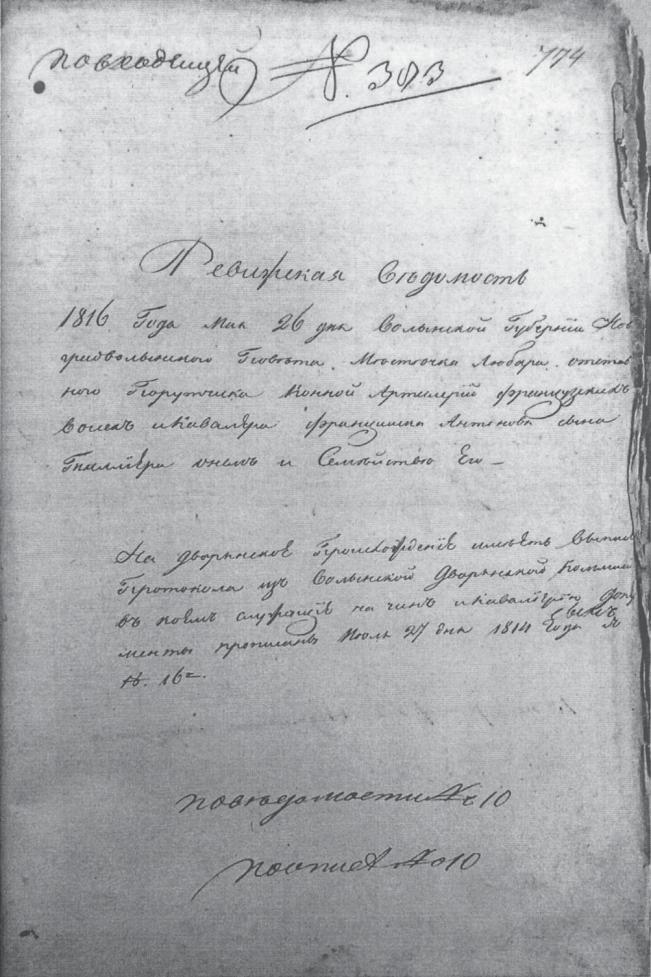 повходящей № 303 774
Ревижская вѣдомость
1816 Года Мая 26 дня Волынской Губернiи Нов
градволынского Повѣта Мѣсточка Любара отстав
ного Порутчика Конной Артилерiи французскихъ
Воискъ и Кавалера францишка Антонова сына
онемъ и Семѣйствѣ Его —
На дворянское Произхождение имѣетъ Выпись
Протокола изъ Волынской Дворянской Комисiи
въ коемъ служащiе на чинъ и Кавалерiю доку
менты прописаны Июля 27 дня 1814 Года
№. 16=.
повѣдомости № 10
поописе № 10